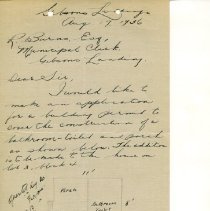 Gibsons Landing
Aug 17, 1936
R. Burns, Esq.,
Municipal Clerk
Gibsons Landing.
Dear Sir,
I would like to
make an application
for a building permit to
cover the construction of a
bathroom-toilet and porch
as shown below. The addition
to be made to the house on
Lot 2, block 4
11'
PORCH
8'